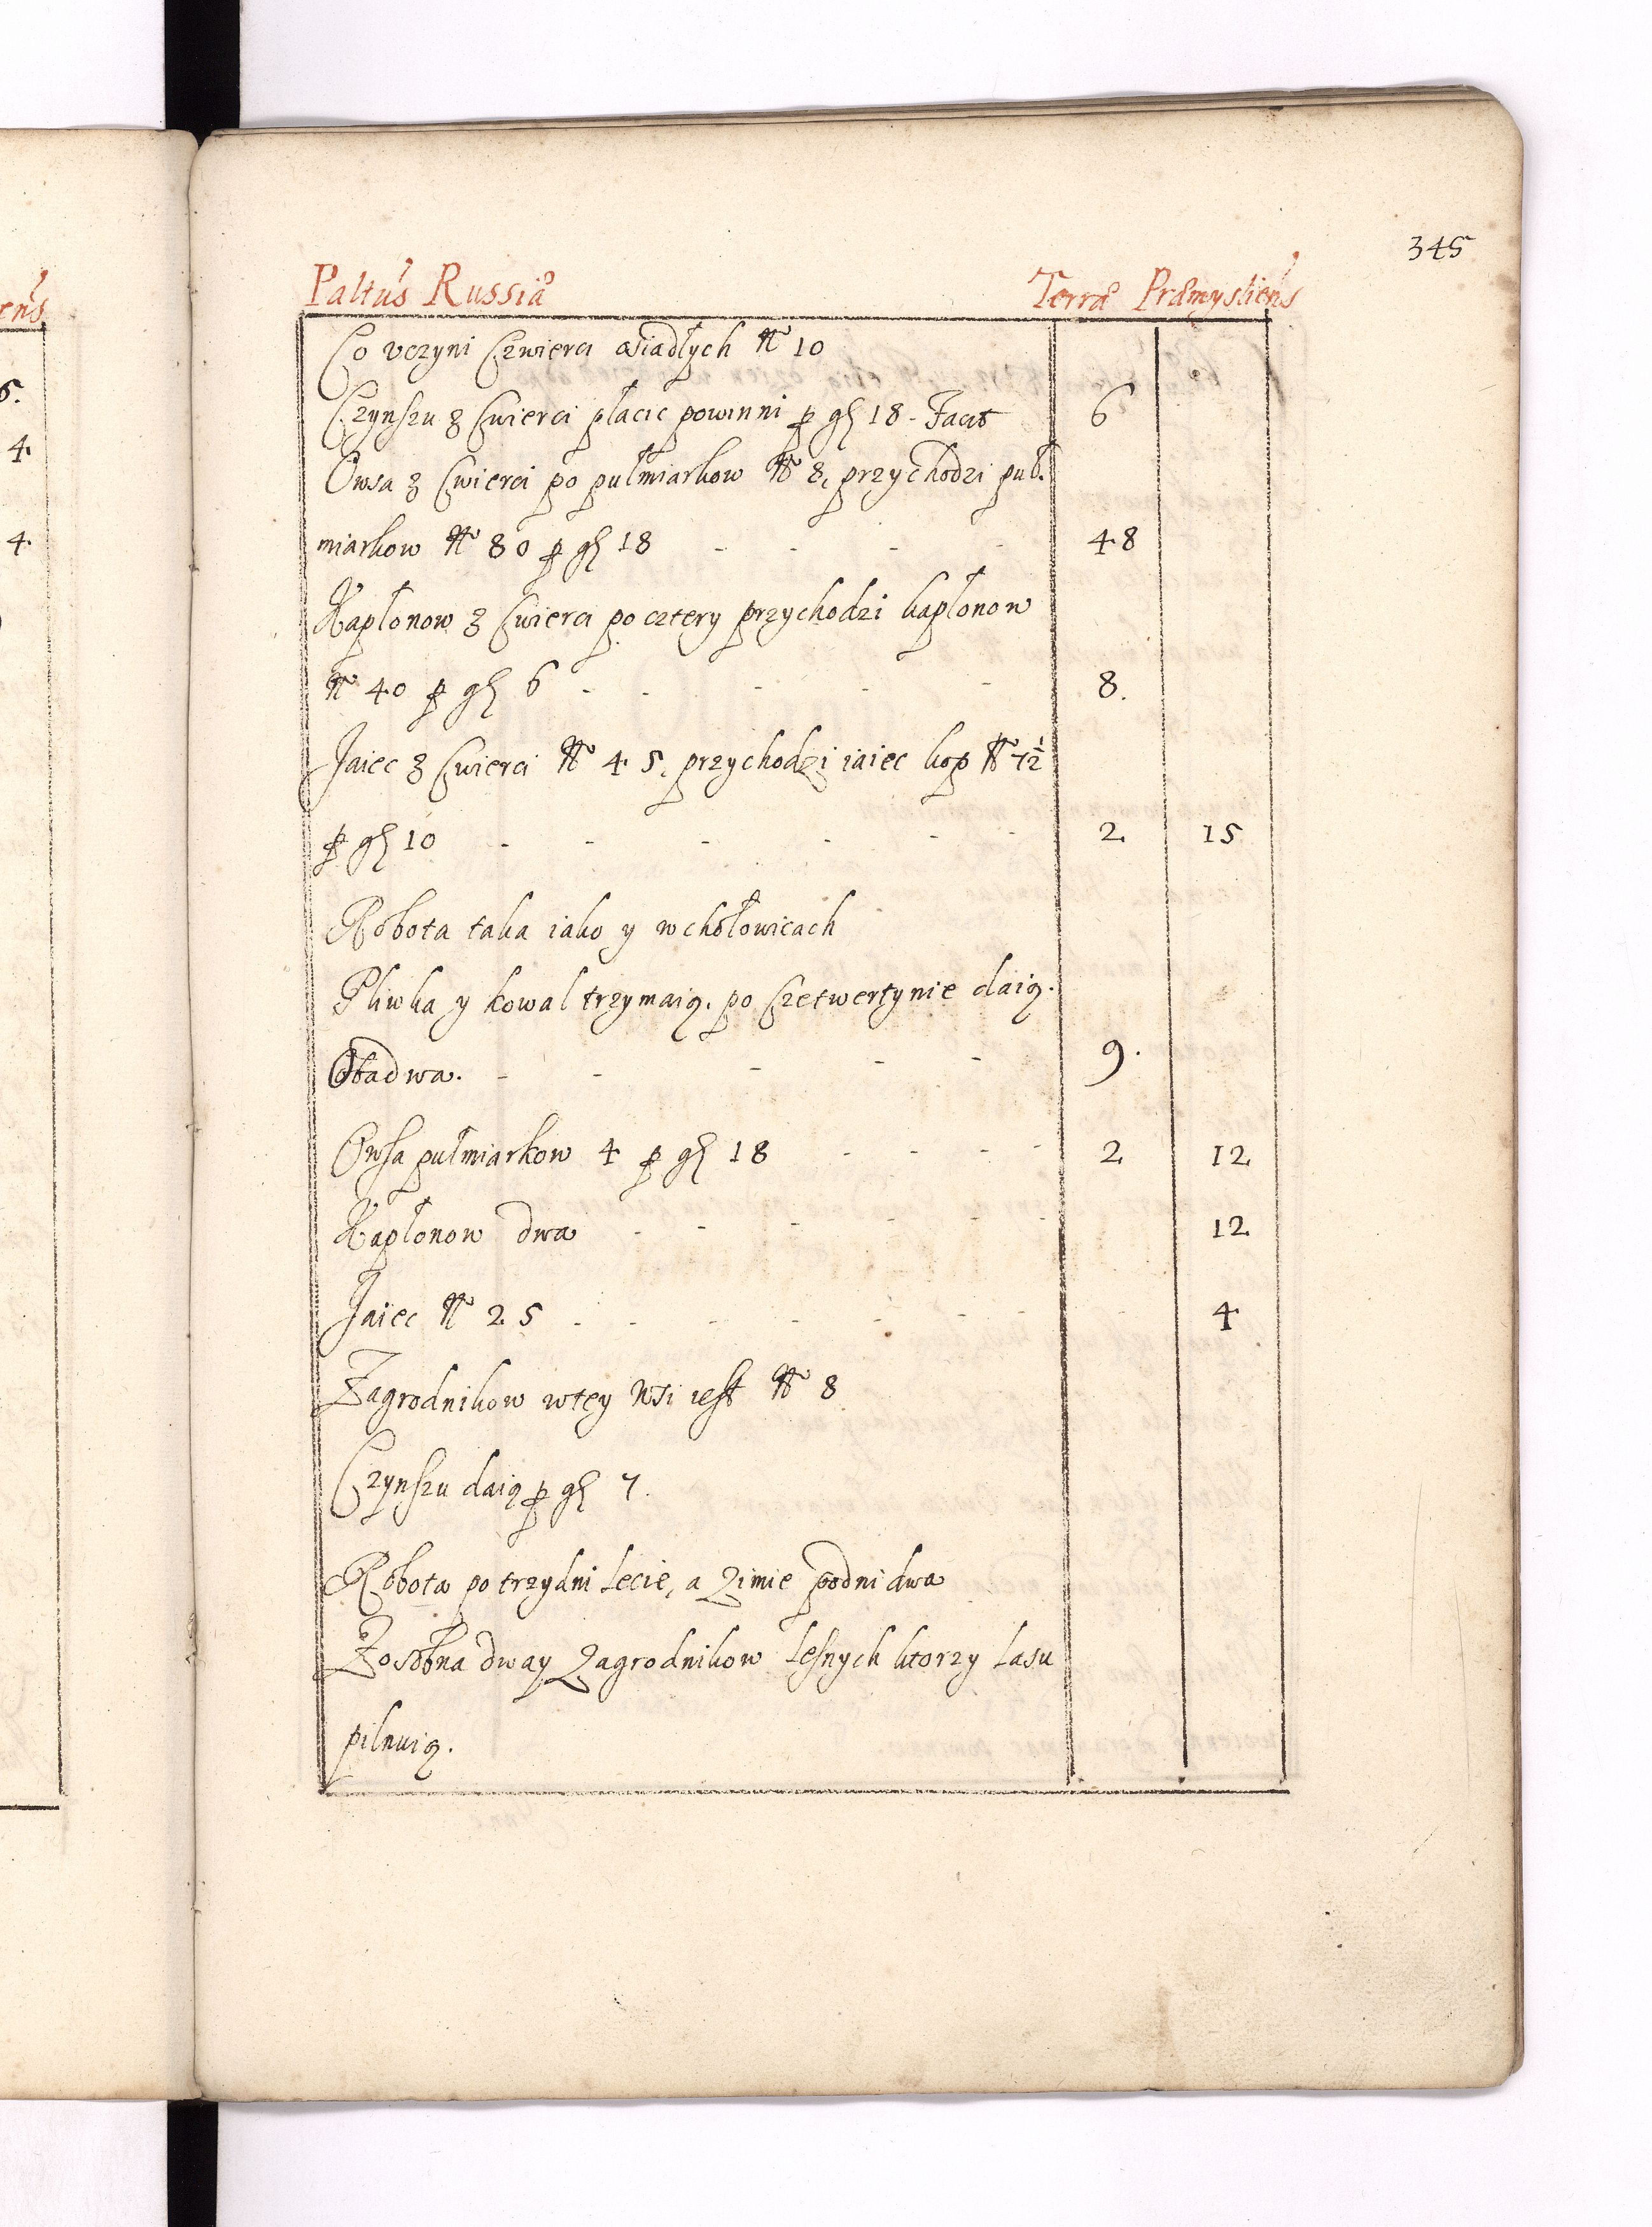 345
Paltūs Russiæ Terræ Præmysliens
Co vczyni Czwierci osiadłych № 10
Czynszu z Cwierci płacic powinni p gl 18 - Facit 6
Owsa z Cwierci po pułmiarkow № 8, przychodzi puł.
miarkow № 80 p gl 18 - - - - 48
Kapłonow z Cwierci po cztery przychodzi kapłonow
№ 40 p gl 6 - - - - - 8.
Jaiec z Cwierci № 45, przychodzi iaiec kop № 7½
p gl 10 - - - - - - 2 15
Robota taka iako y w chołowicach
kowal trzymaią. po Czetwertynie daią.
Obadwa. - - - - - 9.
Owsa pułmiarkow 4 p gl 18 - - - - 2 12
Kapłonow dwa - - - - - - 12
Jaiec № 25 - - - - - - - - 4
Zagrodnikow wtey Wsi iest № 8
Czynszu daią p gl 7.
Robota po trzy dni Lecie, a Zimie podni dwa
Zosobna dway Zagrodnikow Lesnych ktorzy Lasu
pilnuią.
ens
5.
4.
4.